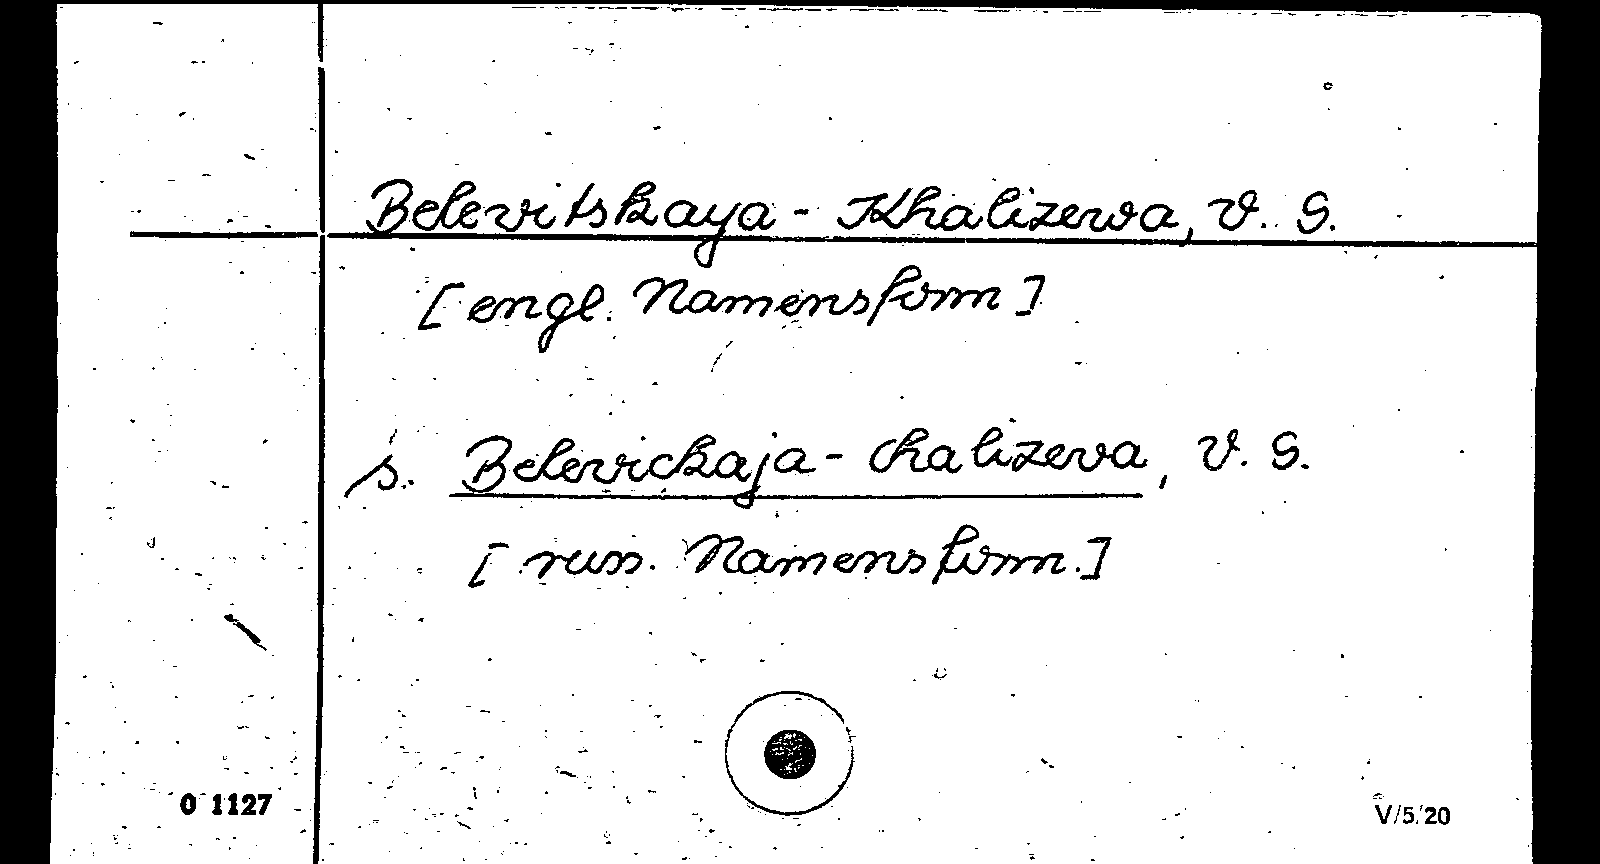 Belevitskaya - Khalizewa, V. S.
[engl. Namensform]
s. Belevickaja - Chalizeva, V. S.
[russ. Namensform.]
O 1127
V/5/20